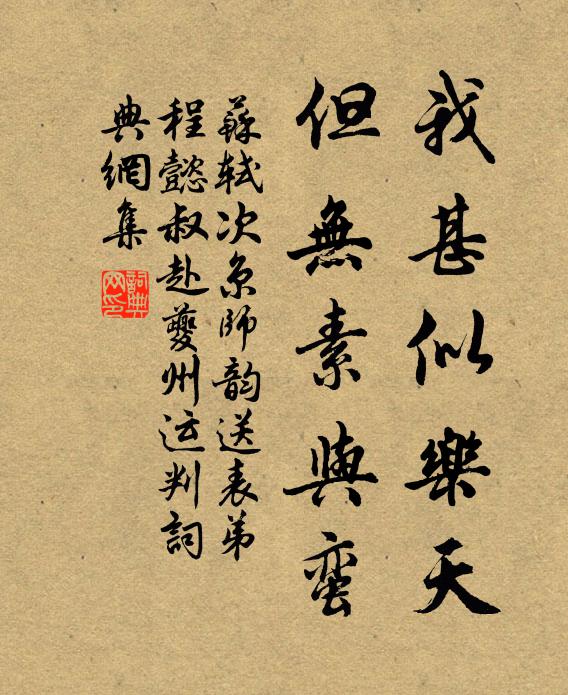 我甚似樂天
但無素與蛮
蘇軾次京師韵送表弟
程懿叔赴夔州运判詞
典網集
詞典网印